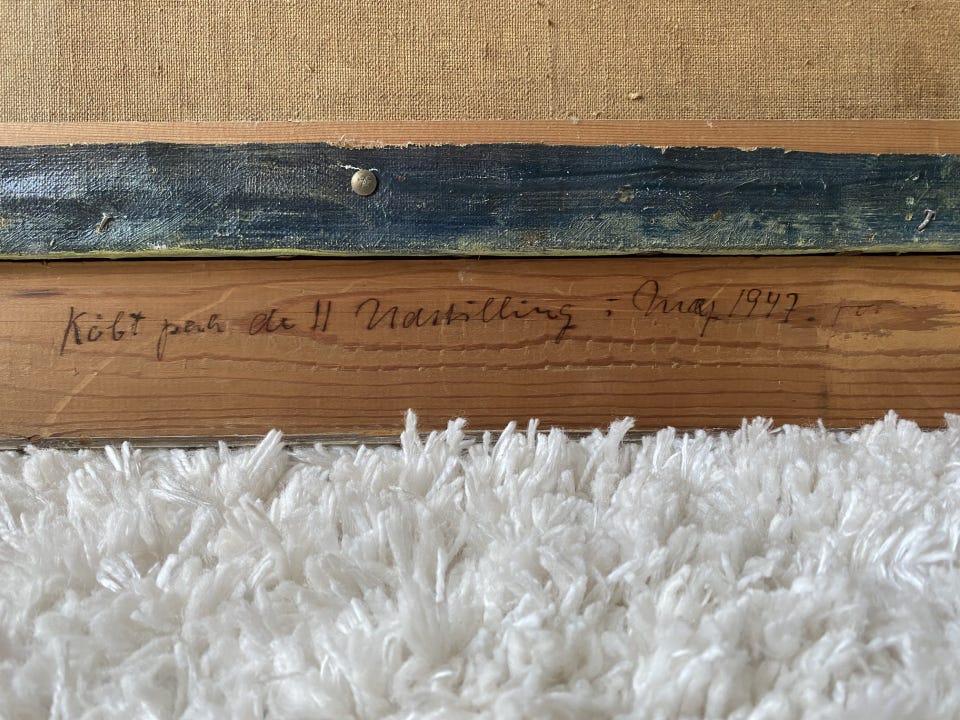 Købt paa de 11 Udstilling i Maj 1947. for